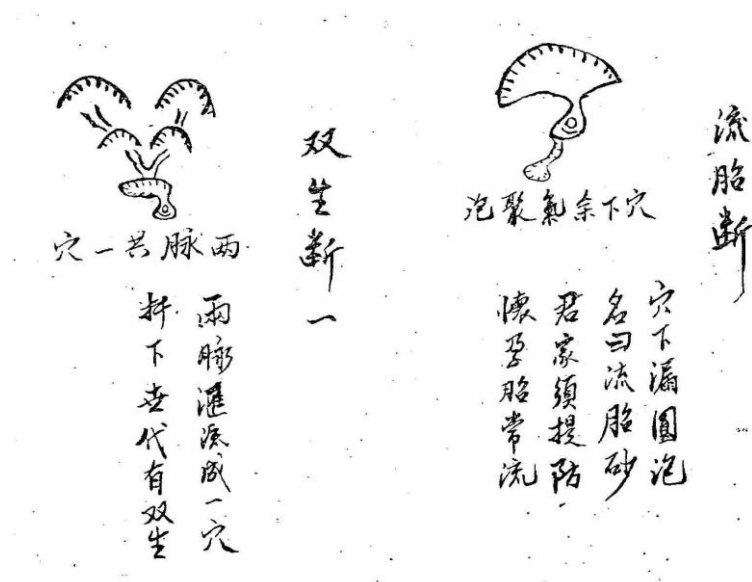 流胎断
穴下余氣聚泡
穴下漏圓泡
名曰流胎砂
君家須提防
懷孕胎常流
双生断一
两脉共一穴
兩脉滙源成一穴
扦下世代有双生